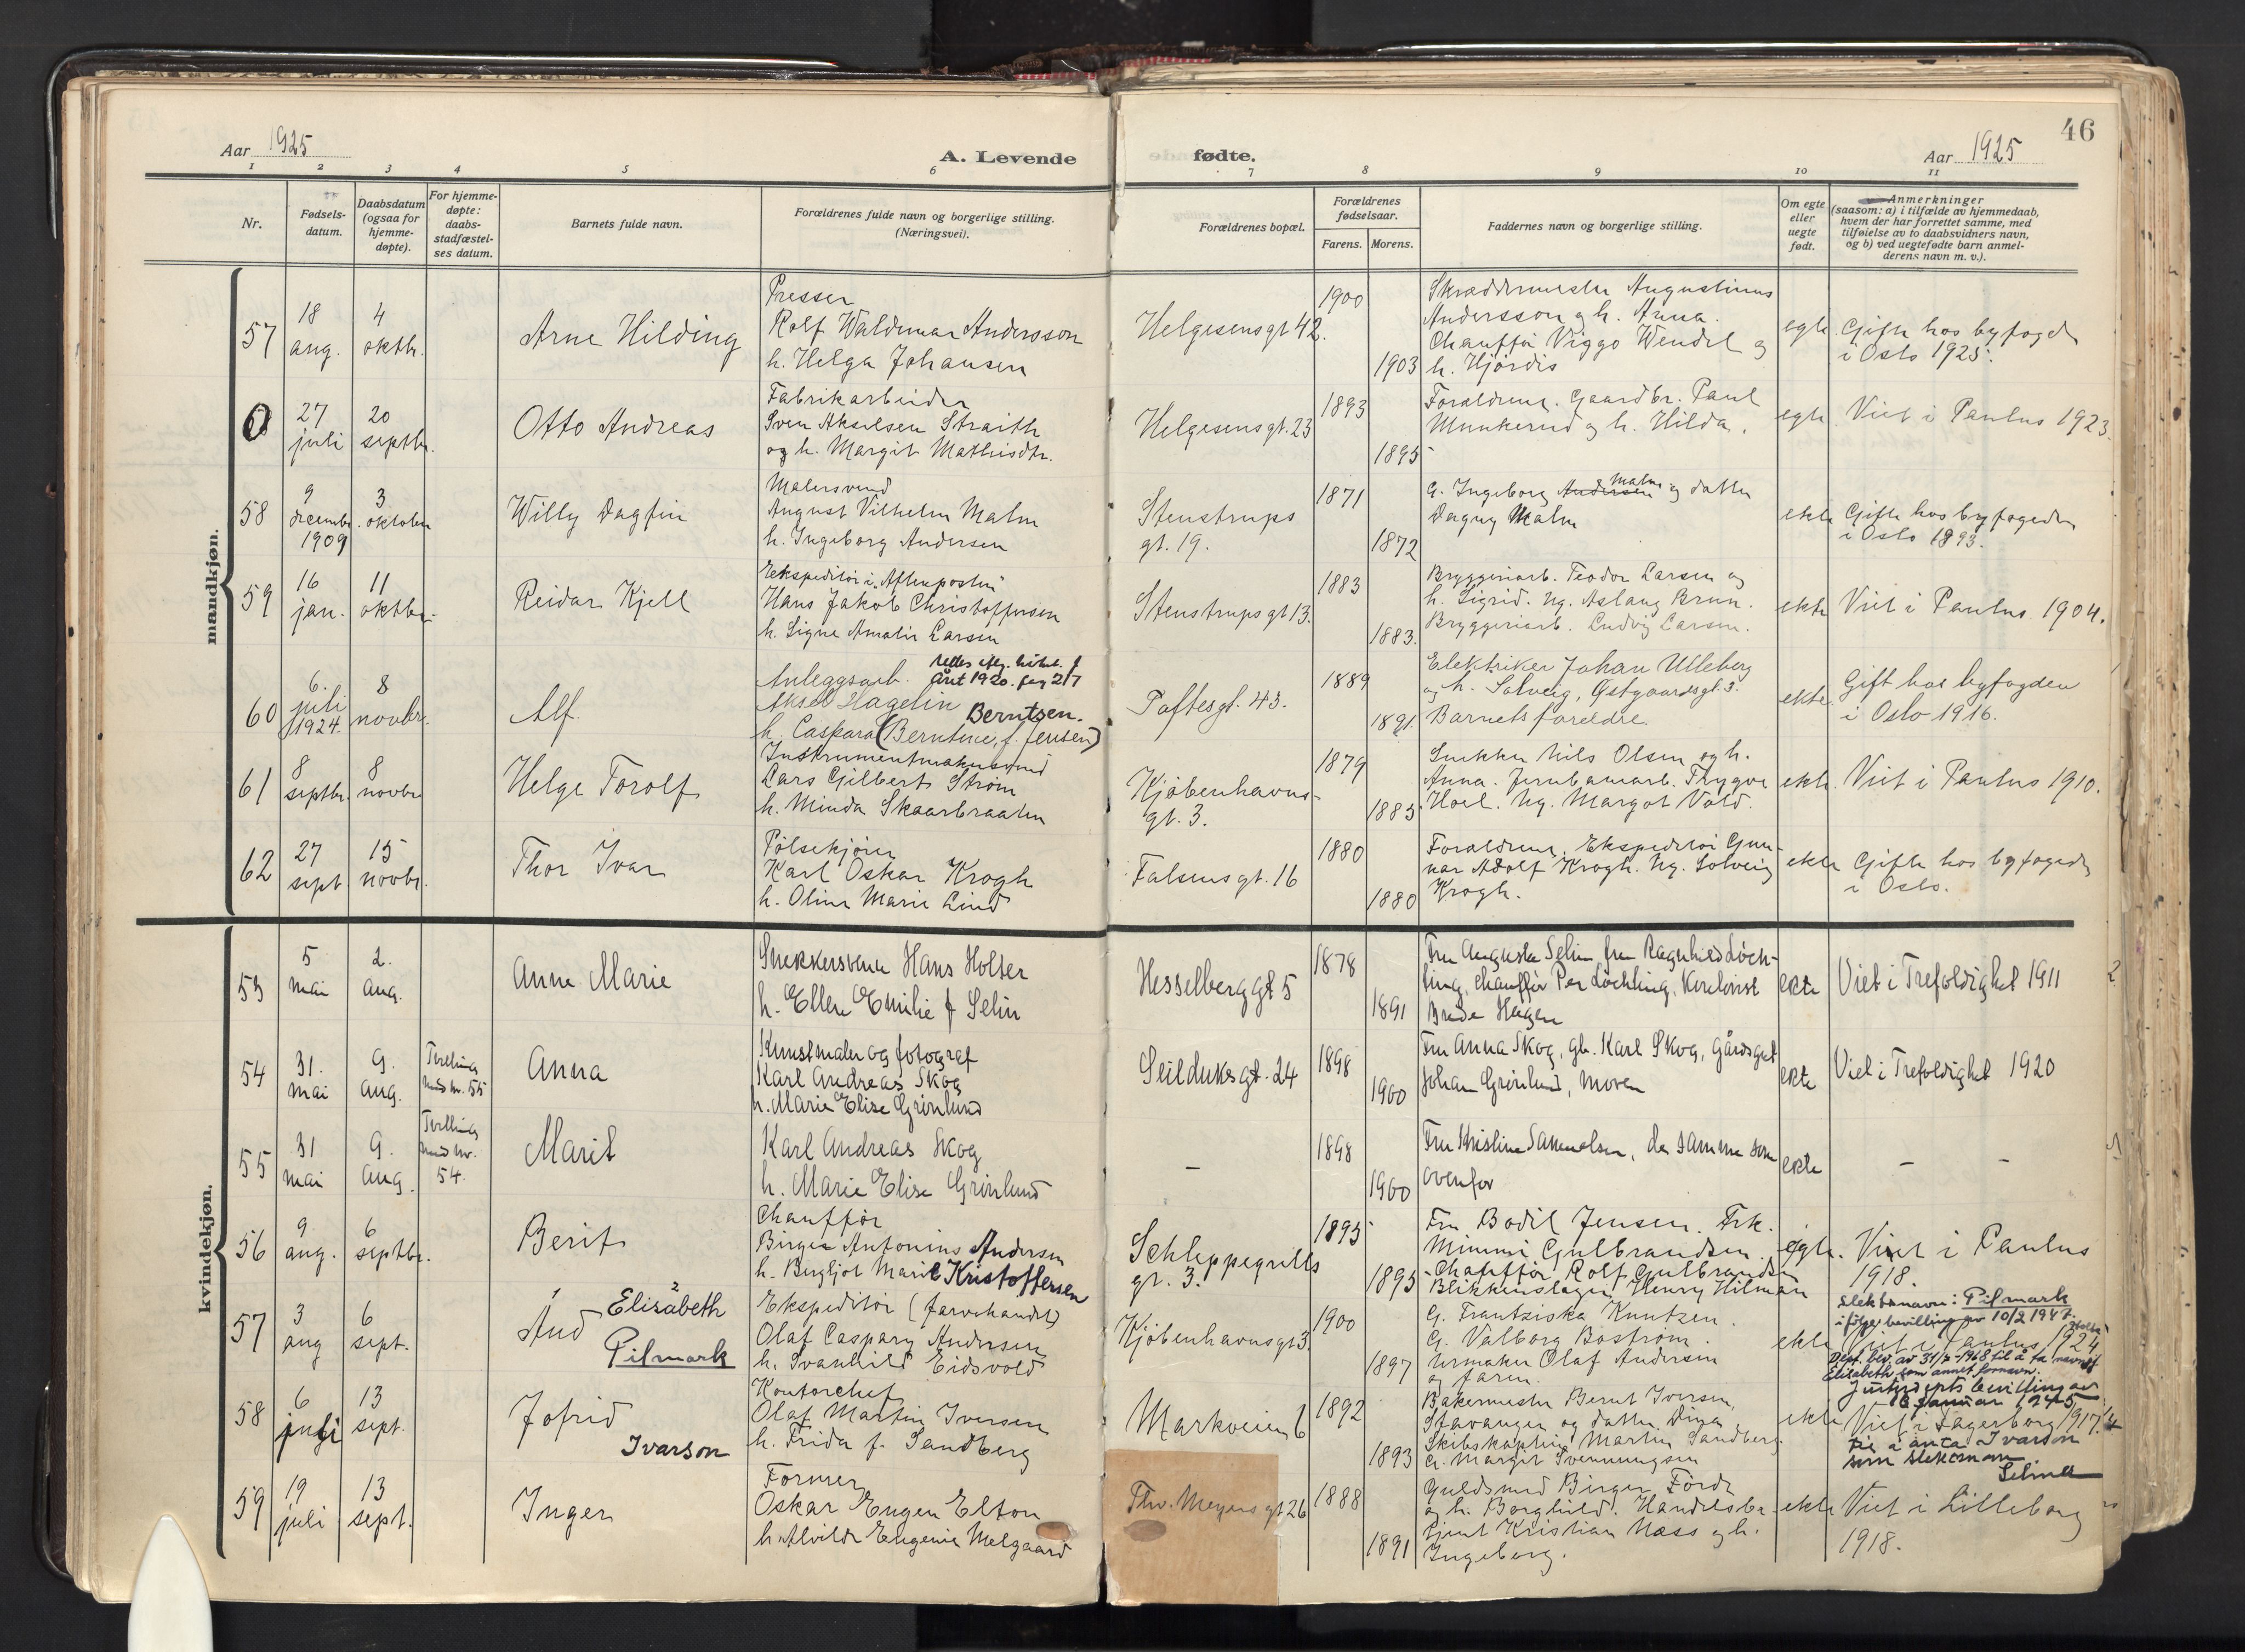 46
Aar 1925
A. Levende
fødte.
Aar 1925
1 2 3 4 5 6 7 8 9 10 11
Nr.
Fødsels-
datum.
Daabsdatum
(ogsaa for
hjemme-
døpte).
For hjemme-
døpte:
daabs-
stadfæstel-
ses datum.
Barnets fulde navn.
Forældrenes fulde navn og borgerlige stilling.
(Næringsvei).
Forældrenes bopæl.
Forældrenes
fødselsaar.
Farens. Morens.
Faddernes navn og borgerlige stilling.
Om egte
eller
uegte
født.
Anmerkninger
(saasom: a) i tilfælde av hjemmedaab,
hvem der har forrettet samme, med
tilføielse av to daabsvidners navn,
og b) ved uegtefødte barn anmel-
derens navn m. v.).
mandkjøn.
57
18
aug.
4
oktbr.
Arne Hilding
Presser
Rolf Waldemar Andersson
h. Helga Johansen
Helgesensgt 42.
1900
1903
Skræddermester Augustinus
Andersson og h. Anna.
Chauffør Viggo Wendel og
h. Hjørdis
egte.
Gifte hos byfoged
i Oslo 1925.
0
27
juli
20
septbr.
Otto Andreas
Fabrikarbeider
Sven Akselsen Straith
og h. Margit Mathisdtr.
Helgesensgt. 23
1893
1895
Forældrene. Gaardbr. Paul
Munkerud og h. Hilda.
egte.
Viet i Paulus 1923.
58
9
decembr.
1909
3
oktober
Willy Dagfin
Malersvend
August Vilhelm Malm
h. Ingeborg Andersen
Stenstrups
gt. 19.
1871
1872
G. Ingeborg Andersen Malm og datter
Dagny Malm
ekte
Gifte hos byfogeden
i Oslo 1893.
59
16
jan.
11
oktbr.
Reidar Kjell
Ekspeditør i "Aftenposten"
Hans Jakob Christoffersen
h. Signe Amalie Larsen
Stenstrupsgt 13.
1883
1883.
Bryggeriarb. Teodor Larsen og
h. Sigrid. Ug. Aslaug Brun.
Bryggeriarb. Ludvig Larsen.
ekte
Viet i Paulus 1904.
60
6.
juli
1924.
8
novbr.
Alf
Anleggsarb.
året 1920.
Aksel Hagelin Berntsen.
h. Caspara (Berntine, f. Jensen)
Toftesgt. 43.
1889
1891.
Elektriker Johan Ulleberg
og h. Solveig, Østgaardsgt. 3.
Barnets foreldre.
ekte
Gift hos byfogden
i Oslo 1916.
61
8
septbr.
8
novbr
Helge Torolf
Instrumentmakersvend
Lars Gilbert Strøm
h. Minda Skaarbraaten
Kjøbenhavns-
gt. 3.
1879
1883
Snekker Nils Olsen og h.
Anna. Jernbanearb. Trygve
Hoel. Ug. Margot Vold.
ekte.
Viet i Paulus 1910.
62
27
sept
15
novbr.
Thor Ivar
Pølsekjører
Karl Oskar Krogh
h. Oline Marie Lind
Falsensgt. 16
1880
1880
Forældrene, Ekspeditør Gun-
nar Adolf Krogh. Ug. Solveig
Krogh.
ekte
Gifte hos byfogeden
i Oslo.
kvindekjøn.
53
5
mai
2.
aug.
Anne Marie
Snekkersvenn Hans Holter
h. Ellen Emilie f Selin
Hesselberggt 5
1878
1891
Fru Augusta Selin, fru Ragnhild Løch-
ting, chauffør Per Løchting,
Hagen
ekte
Viet i Trefoldighet 1911
54
31.
mai
9.
aug.
Tvilling
med nr. 55
Anna
Kunstmaler og fotograf
Karl Andreas Skog
h. Marie Elise Grønlund
Seilduksgt. 24
1898
1900
Fru Anna Skog, gb. Karl Skog, gårdsgut
Johan Grønlund, moren
ekte
Viet i Trefoldighet 1920
55
31
mai
9.
aug.
Tvilling
med nr.
54.
Marit
Karl Andreas Skog
h. Marie Elise Grønlund
–
1898
1900
Fru Kristine Samuelsen, de samme som
ovenfor
ekte
– –
56
9
aug.
6
septbr.
Berit
Chauffør
Birger Antonius Andersen
h. Bergljot Marie Kristoffersen
Schleppegrells
gt. 3.
1895
1895
Fru Bodil Jensen. Frk.
Mimmi Gulbrandsen.
Chauffør Rolf Gulbrandsen
Blikkenslager Henry Hilman
egte.
Viet i Paulus
1918.
57
3
aug
6
sept.
1 2
Aud Elisabeth
Pilmark
Ekspeditør (farvehandel)
Olaf Caspary Andersen
h. Svanhild Eidsvold
Kjøbenhavnsgt 3.
1900
1897
G. Frantziska Knutzen.
G. Valborg Bostrøm.
Urmaker Olaf Andersen
og faren.
ekte
Slektsnavn: Pilmark
ifølge bevilling av 10/2 1947.
Viet i Paulus 1924
Dept. bev. av 31/7-1968 til å ta navnet
Elisabeth som annet fornavn.
58
6
juli
13
sept.
Jofrid
Ivarson
Kontorchef
Olaf Martin Iversen
h. Frida f. Sandberg
Markveien 6
1892
1893
Bakermester Bernt Iversen,
Stavanger og datter Dina,
Skibskaptein Martin Sandberg.
G. Margit Svenningsen
ekte
Justisdepts bevilling av
16 januar 1945
Viet i Fagerborg 1917.
til å anta Ivarson
som slektsnavn
Selmer
59
19
juli
13
sept.
Inger
Former
Oskar Eugen Elton
h. Alvilde Eugenie Melgaard
Thv. Meyers gt 26
1888
1891
Guldsmed Birger Førde
og h. Borghild. Handelsbe-
tjent Kristian Næss og h.
Ingeborg.
ekte
Viet i Lilleborg
1918.